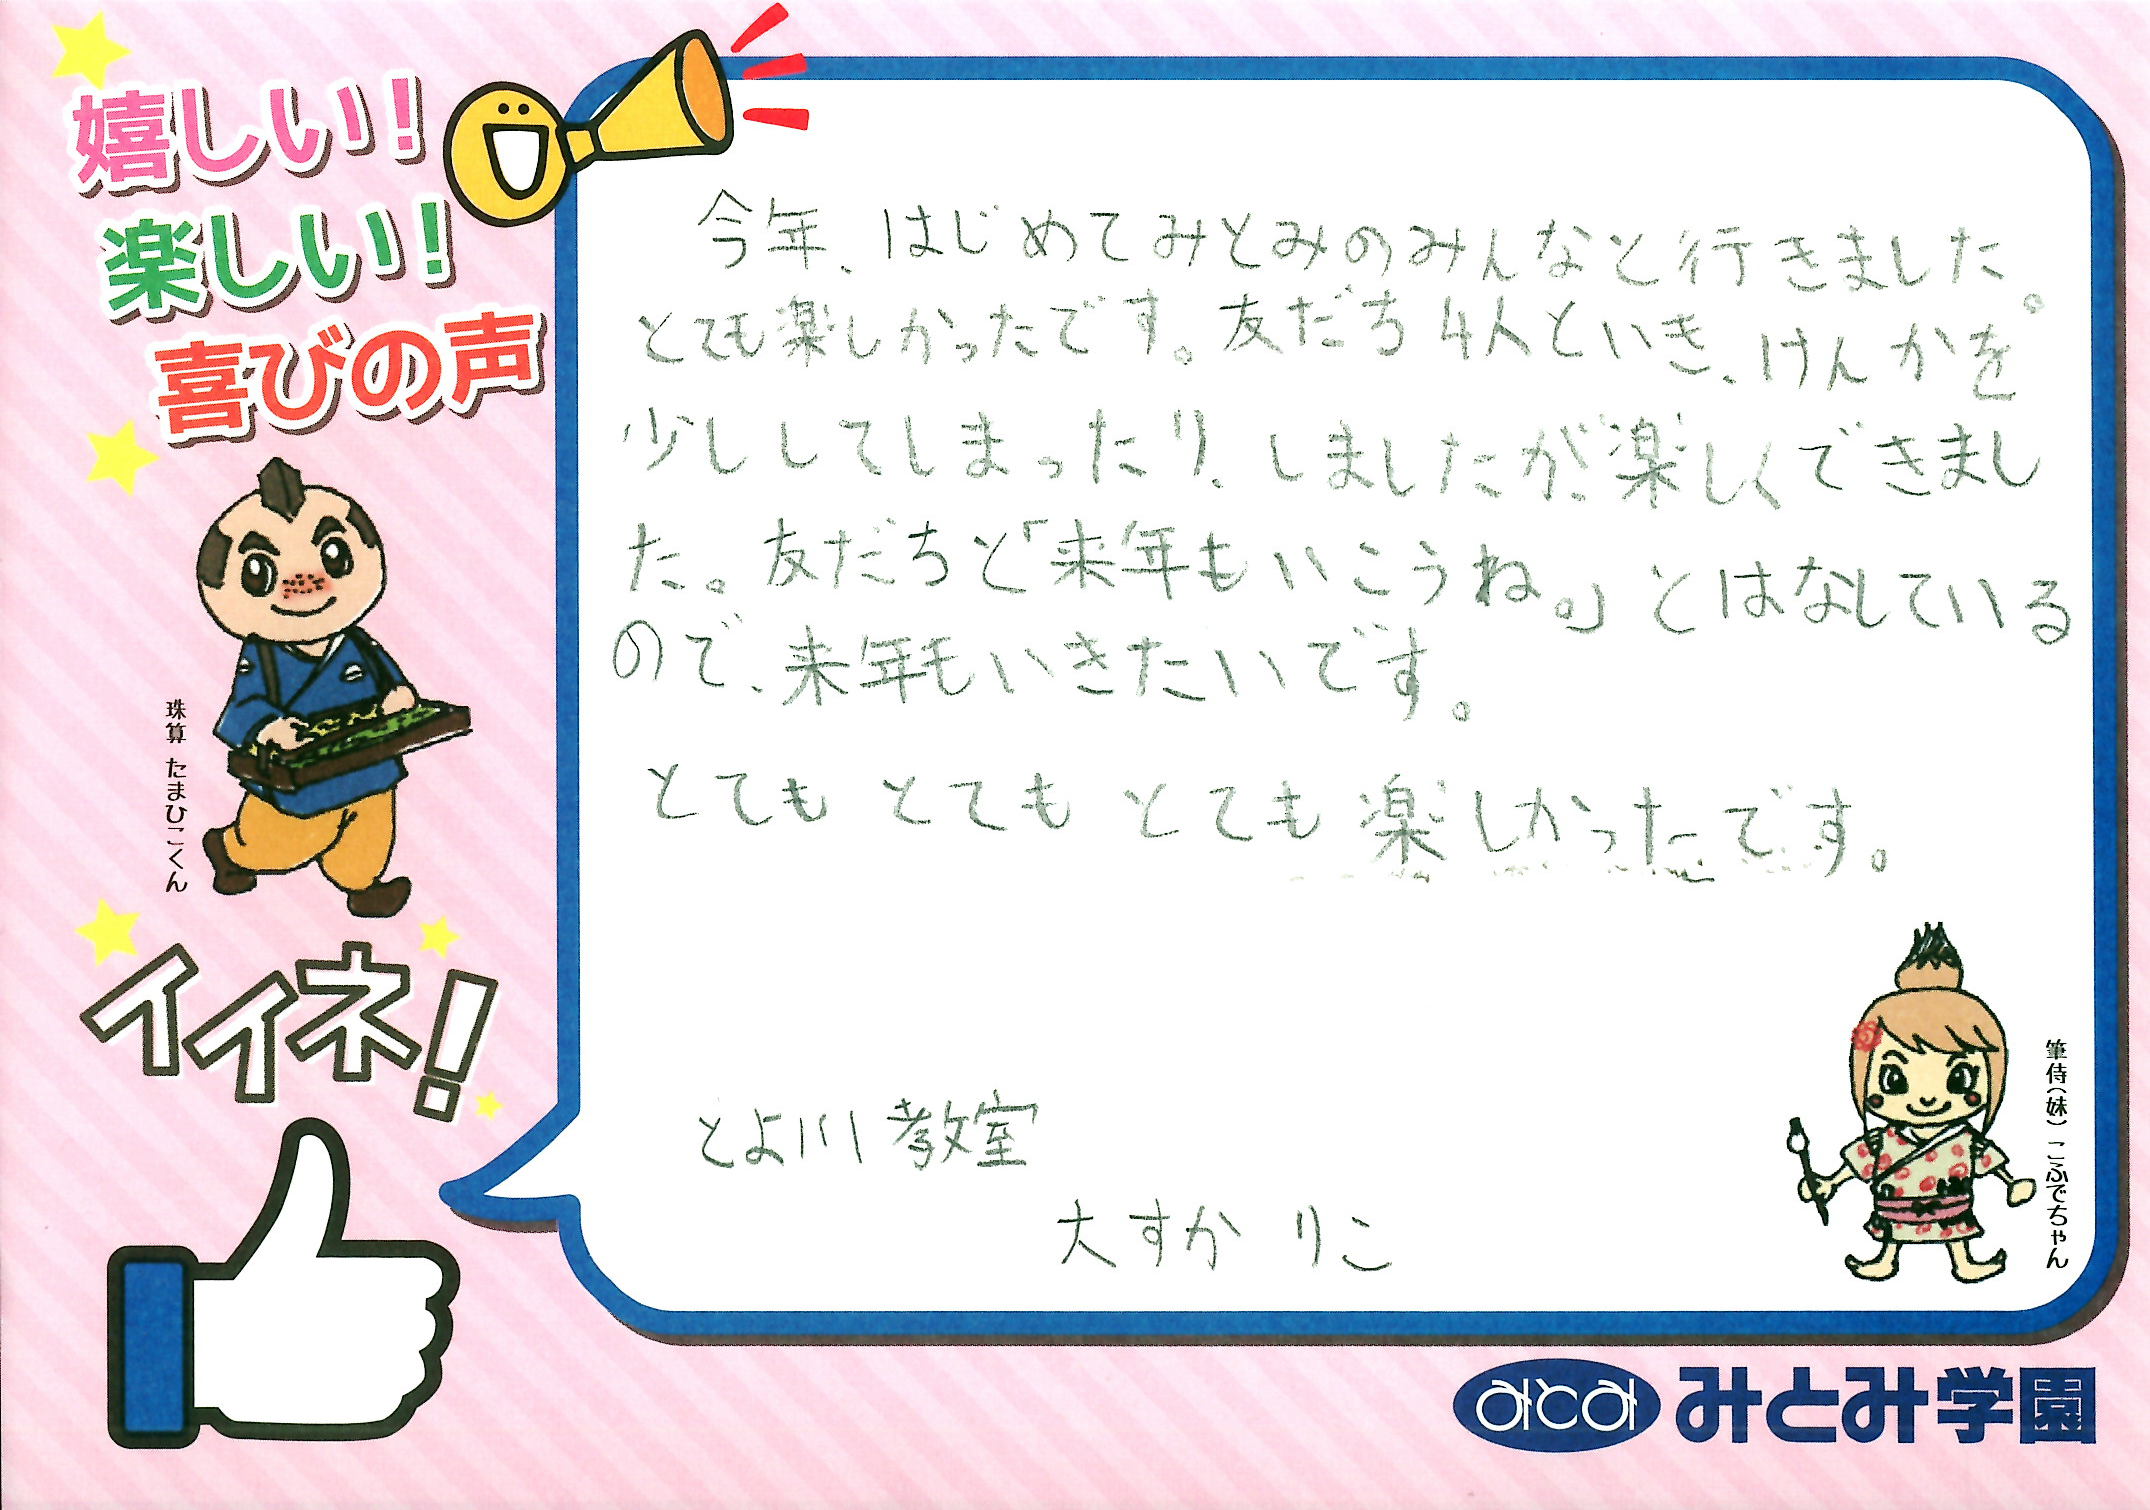 嬉しい!
楽しい!
喜びの声
今年、はじめてみとみのみんなと行きました。
とても楽しかったです。友だち4人といき、けんかを
少ししてしまったり、しましたが楽しくできまし
た。友だちと「来年もいこうね。」とはなしている
ので、来年もいきたいです。
とても とても とても 楽しかったです。
とよ川教室
大すか りこ
珠算 たまひこくん
イイネ!
筆侍(妹) こふでちゃん
みとみ みとみ学園